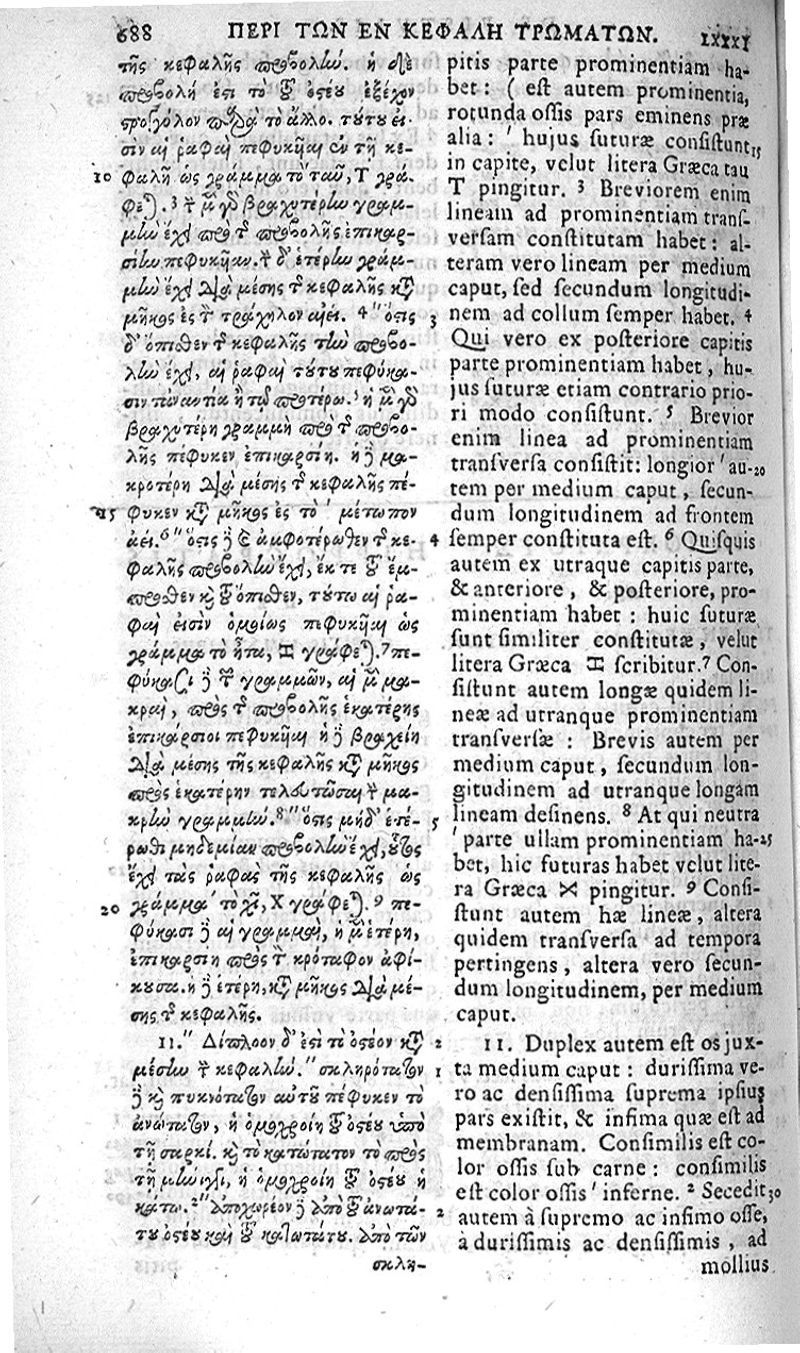 688 ΠΕΡΙ ΤΩΝ ΕΝ ΚΕΦΑΛΗ ΤΡΩΜΑΤΩΝ.
τῆς κεφαλῆς προβολὴν. ἡ δὲ
προβολή ἐςι τὸ τοῦ ὀςέου ἐξέχον
ςρογγύλον παρὰ τὸ ἄλλο. τούτου εἰ-
σὶν αἱ ῥαφαὶ πεφυκῆαι ἐν τῇ κε-
10 φαλῇ ὡς γράμμα τὸ ταῦ, Τ γρά-
φεται. 3 τὴν μὲν γὰρ βραχυτέρην γραμ-
μὴν ἔχει πρὸ τῆς προβολῆς ἐπικαρ-
σίην πεφυκῆαν. τὴν δ' ἑτέρην γραμ-
μὴν ἔχει διὰ μέσης τῆς κεφαλῆς κατὰ
μῆκος ἐς τὸν τράχηλον αἰεί. 4 " ὅςις
δ' ὄπισθεν τῆς κεφαλῆς τὴν προβο-
λὴν ἔχει, αἱ ῥαφαὶ τούτου πεφύκα-
σιν τἀναντία ἢ τῷ προτέρῳ. 5 ἡ μὲν γὰρ
βραχυτέρη γραμμὴ πρὸ τῆς προβο-
λῆς πέφυκεν ἐπικαρσίη. ἡ δὲ μα-
κροτέρη διὰ μέσης τῆς κεφαλῆς πέ-
15 φυκεν κατὰ μῆκος ἐς τὸ ' μέτωπον
ἀεί. 6 " ὅςις δὲ καὶ ἀμφοτέρωθεν τῆς κε-
φαλῆς προβολὴν ἔχει, ἔκ τε τοῦ ἔμ-
προσθεν καὶ τοῦ ὄπισθεν, τούτῳ αἱ ῥα-
φαὶ εἰσὶν ὁμοίως πεφυκῆαι ὡς
γράμμα τὸ ἦτα, Η γράφεται. 7 πε-
φύκασι δὲ τῶν γραμμῶν, αἱ μὲν μα-
κραὶ, πρὸς τῆς προβολῆς ἑκατέρης
ἐπικάρσιοι πεφυκῆαι ἡ δὲ βραχείη
διὰ μέσης τῆς κεφαλῆς κατὰ μῆκος
πρὸς ἑκατέρην τελευτῶσα τὴν μα-
κρὴν γραμμήν. 8 " ὅςις μηδ' ἑτέ-
ρωθι μηδεμίαν προβολὴν ἔχει, οὗτος
ἔχει τὰς ῥαφὰς τῆς κεφαλῆς ὡς
20 γράμμα ' τὸ χῖ, Χ γράφεται. 9 πε-
φύκασι δὲ αἱ γραμμαὶ, ἡ μὲν ἑτέρη,
ἐπικαρσίη πρὸς τὸν κρόταφον ἀφί-
κουσα. ἡ δὲ ἑτέρη, κατὰ μῆκος διὰ μέ-
σης τῆς κεφαλῆς.
11. " Δίπλοον δ' ἐςὶ τὸ ὀςέον κατὰ
μέσην τὴν κεφαλήν. " σκληρότατον
δὲ καὶ πυκνότατον αὐτοῦ πέφυκεν τό
ἀνώτατον, ἡ ὁμοχροίη τοῦ ὀςέου ὑπὸ
τῇ σαρκί. καὶ τὸ κατώτατον τὸ πρὸς
τῇ μήνιγγι, ἡ ὁμοχροίη τοῦ ὀςέου ἡ
κάτω. 2 " ἀποχωρέον δὲ ἀπὸ τοῦ ἀνωτά-
του ὀςέου καὶ τοῦ κατωτάτου. ἀπὸ τῶν
σκλη-
pitis parte prominentiam ha-
bet: ( est autem prominentia,
rotunda ossis pars eminens præ
alia: ' hujus suturæ consistunt 15
in capite, velut litera Græca tau
T pingitur. 3 Breviorem enim
lineam ad prominentiam trans-
versam constitutam habet: al-
teram vero lineam per medium
caput, sed secundum longitudi-
3 nem ad collum semper habet. 4
Qui vero ex posteriore capitis
parte prominentiam habet, hu-
jus suturæ etiam contrario prio-
ri modo consistunt. 5 Brevior
enim linea ad prominentiam
transversa consistit: longior ' au- 20
tem per medium caput, secun-
dum longitudinem ad frontem
4 semper constituta est. 6 Quisquis
autem ex utraque capitis parte,
& anteriore, & posteriore, pro-
minentiam habet: huic suturæ
sunt similiter constitutæ, velut
litera Græca Η scribitur. 7 Con-
sistunt autem longæ quidem li-
neæ ad utranque prominentiam
transversæ: Brevis autem per
medium caput, secundum lon-
gitudinem ad utranque longam
5 lineam desinens. 8 At qui neutra
' parte ullam prominentiam ha- 25
bet, hic suturas habet velut lite-
ra Græca Χ pingitur. 9 Consi-
stunt autem hæ lineæ, altera
quidem transversa ad tempora
pertingens, altera vero secun-
dum longitudinem, per medium
caput.
2 11. Duplex autem est os jux-
1 ta medium caput: durissima ve-
ro ac densissima suprema ipsius
pars existit, & infima quæ est ad
membranam. Consimilis est co-
lor ossis sub carne: consimilis
est color ossis ' inferne. 2 Secedit 30
2 autem à supremo ac infimo osse,
à durissimis ac densissimis, ad
mollius